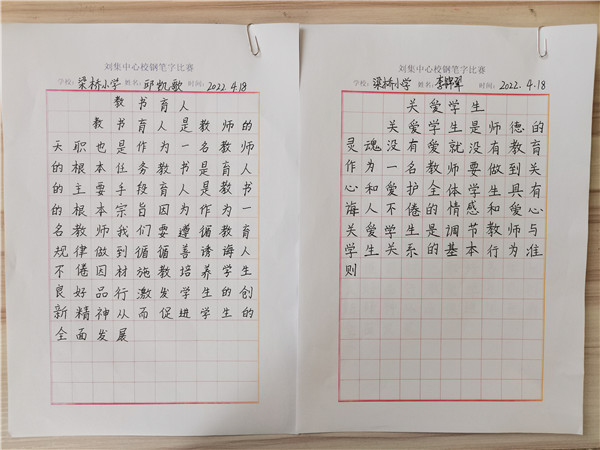 刘集中心校钢笔字比赛
学校：梁桥小学 姓名：邱凯歌 时间：2022.4.18
教书育人
教书育人是教师的
天职也是作为一名教师
的根本任务教书是育人
的主要手段育人是教书
的根本宗旨因为作为一
名教师我们要遵循教育
规律做到循循善诱诲人
不倦因材施教培养学生
良好品行激发学生的创
新精神从而促进学生的
全面发展
刘集中心校钢笔字比赛
学校：梁桥小学 姓名：李锦翠 时间：2022.4.18
关爱学生
关爱学生是师德的
灵魂没有爱就没有教育
作为一名教师要做到关
心和爱护全体学生具有
诲人不倦的情感和爱心
关爱学生是调节教师与
学生关系的基本行为准
则